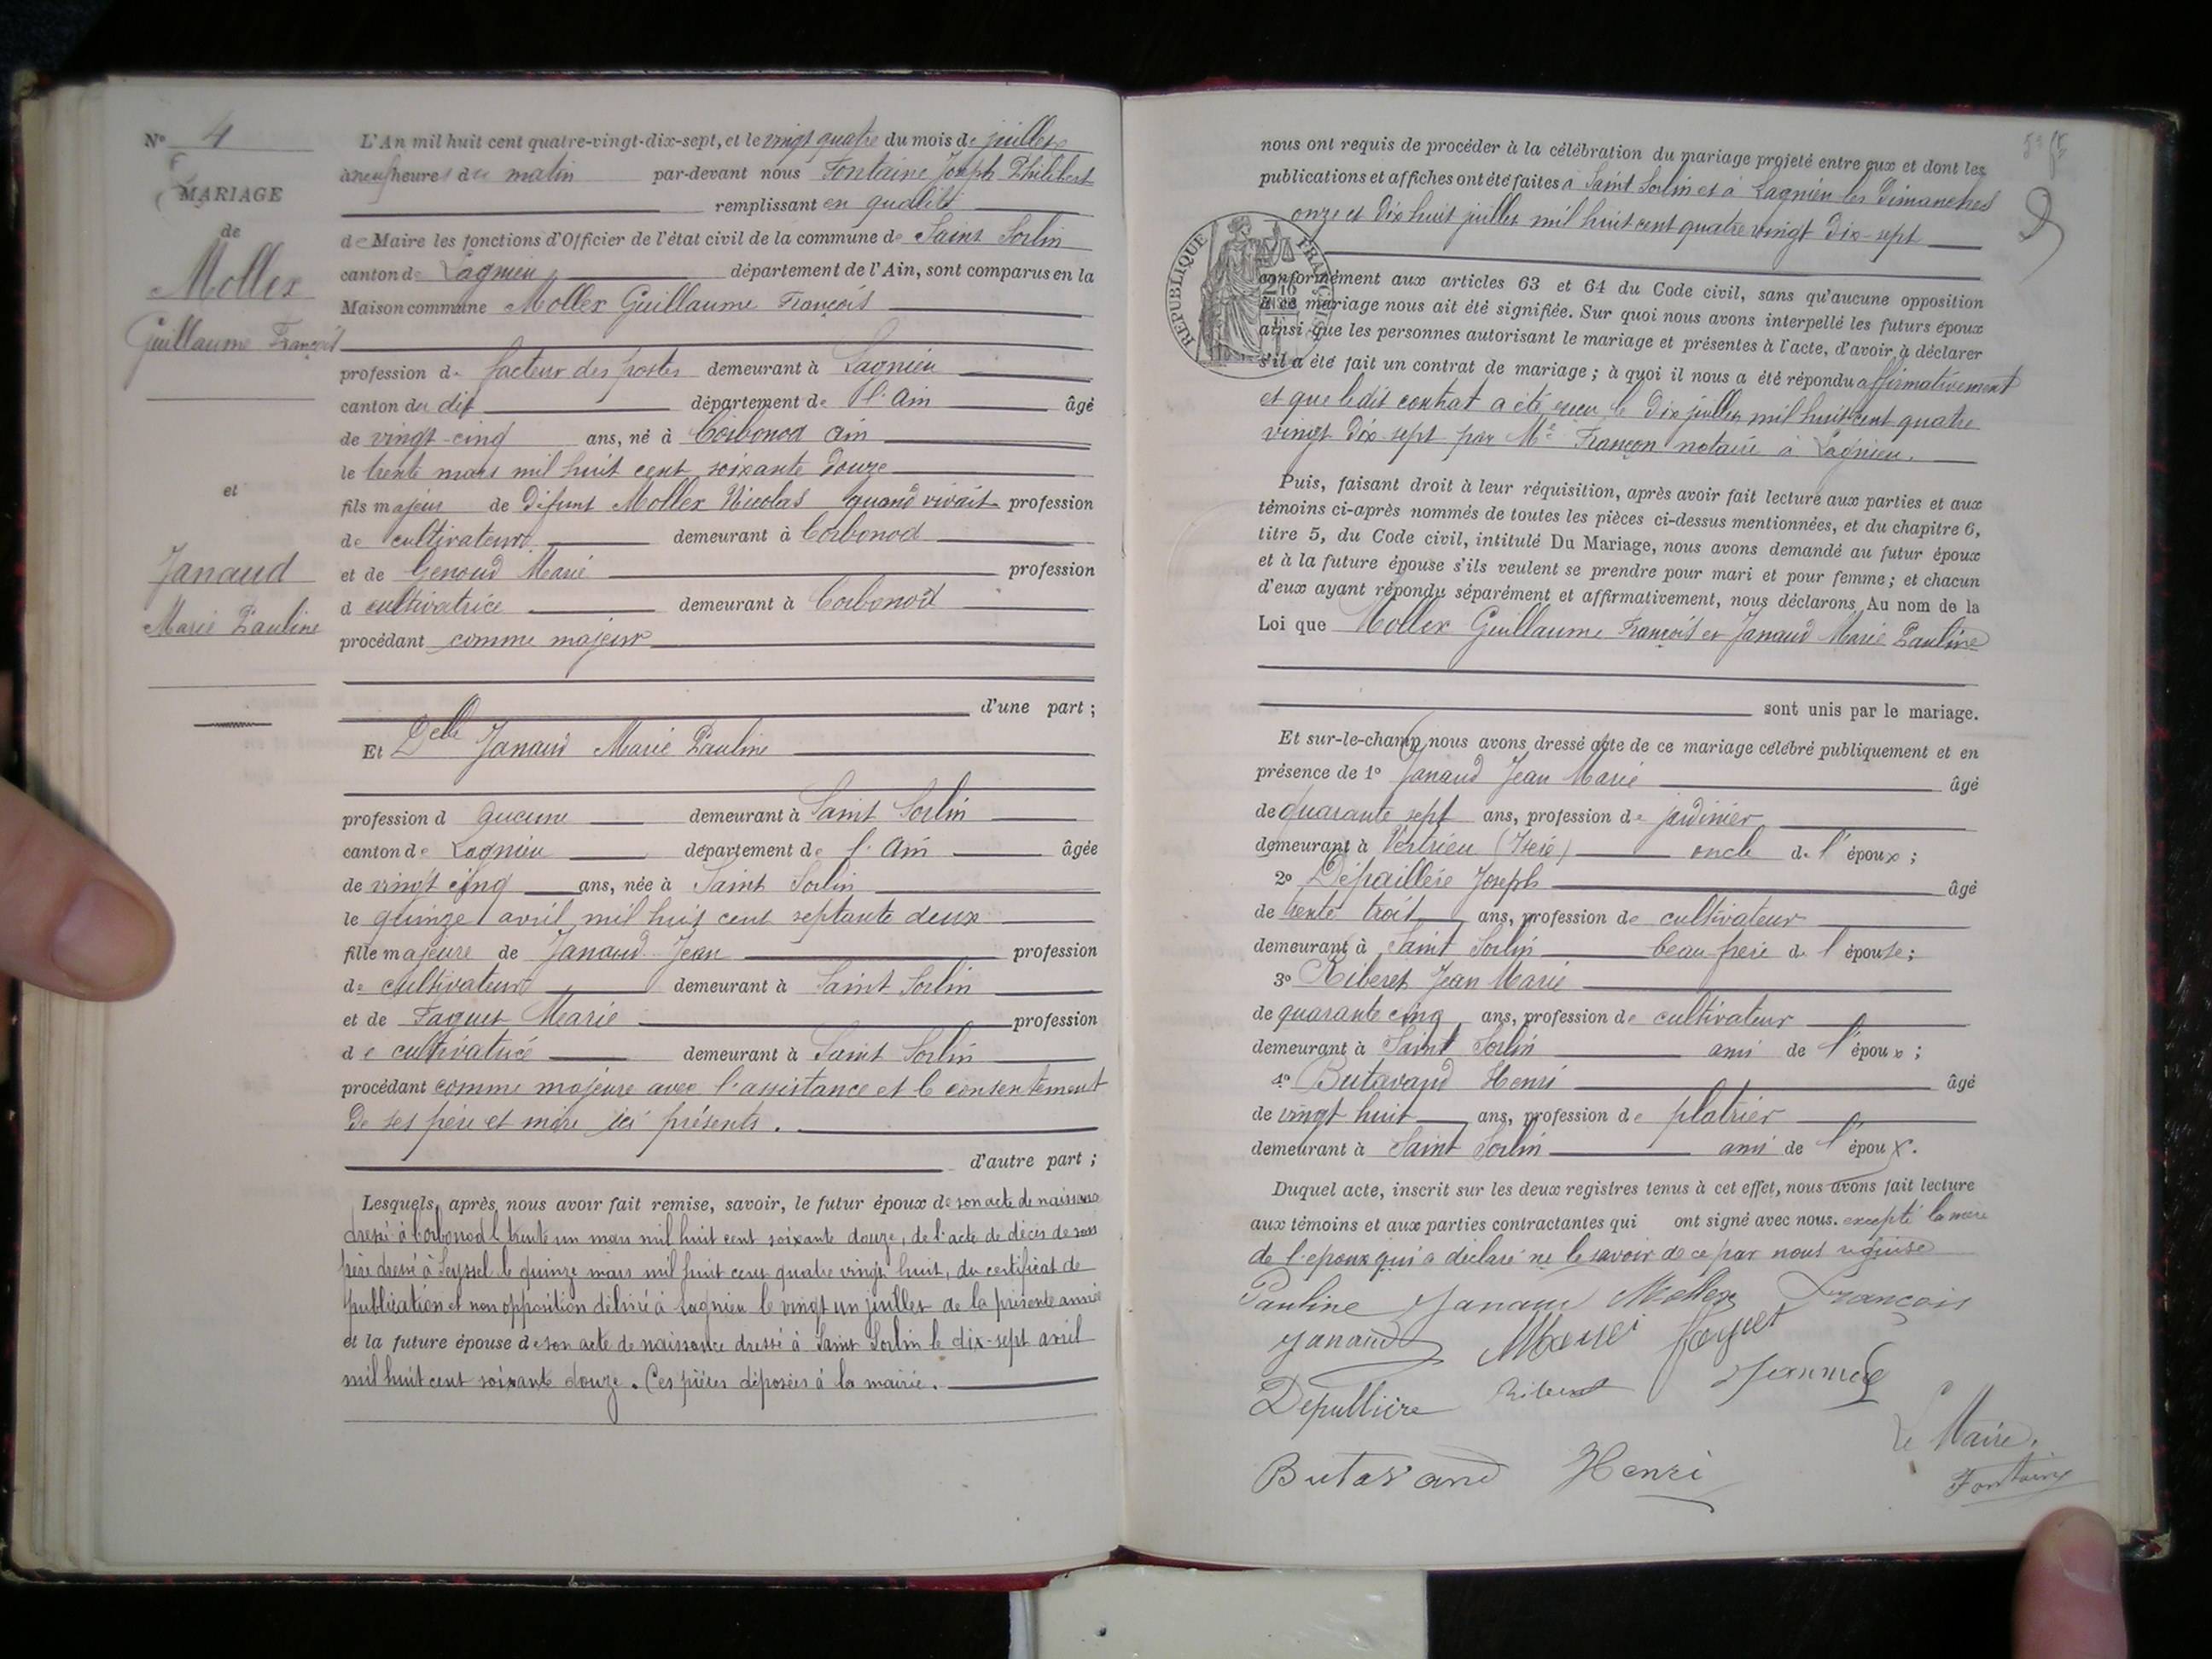 N° 4
MARIAGE
de
Mollex
Guillaume François
et
Janaud
Marie Pauline
L'An mil huit cent quatre-vingt-dix-sept, et le vingt quatre du mois de juillet
à neuf heures du matin par-devant nous Fontaine Joseph Philibert
remplissant en qualité
de Maire les fonctions d'Officier de l'état civil de la commune de Saint Sorlin
canton de Lagnieu département de l'Ain, sont comparus en la
Maison commune Mollex Guillaume François
profession de facteur des postes demeurant à Lagnieu
canton du dit département de l'Ain âgé
de vingt-cinq ans, né à Corbonod Ain
le trente mars mil huit cent soixante douze
fils majeur de défunt Mollex Nicolas quand vivait profession
de cultivateur demeurant à Corbonod
et de Genoud Marie profession
d cultivatrice demeurant à Corbonod
procédant comme majeur
d'une part ;
Et Delle Janaud Marie Pauline
profession d aucune demeurant à Saint Sorlin
canton de Lagnieu département de l'Ain âgée
de vingt cinq ans, née à Saint Sorlin
le quinze avril mil huit cent septante deux
fille majeure de Janaud Jean profession
de cultivateur demeurant à Saint Sorlin
et de Faguet Marie profession
de cultivatrice demeurant à Saint Sorlin
procédant comme majeure avec l'assistance et le consentement
de ses père et mère ici présents.
d'autre part ;
Lesquels, après nous avoir fait remise, savoir, le futur époux de son acte de naissance
dressé à Corbonod le trente un mars mil huit cent soixante douze, de l'acte de décès de son
père dressé à Seyssel le quinze mars mil huit cent quatre vingt huit, du certificat de
publication et non opposition délivré à Lagnieu le vingt un juillet de la présente année
et la future épouse de son acte de naissance dressé à Saint Sorlin le dix-sept avril
mil huit cent soixante douze. Ces pièces déposées à la mairie.
nous ont requis de procéder à la célébration du mariage projeté entre eux et dont les
publications et affiches ont été faites à Saint Sorlin et à Lagnieu les Dimanches
onze et dix huit juillet mil huit cent quatre vingt dix-sept
REPUBLIQUE FRANÇAISE
conformément aux articles 63 et 64 du Code civil, sans qu'aucune opposition
à ce mariage nous ait été signifiée. Sur quoi nous avons interpellé les futurs époux
ainsi que les personnes autorisant le mariage et présentes à l'acte, d'avoir à déclarer
s'il a été fait un contrat de mariage ; à quoi il nous a été répondu affirmativement
et que le dit contrat a été reçu le dix juillet mil huit cent quatre
vingt dix-sept par Me Françon notaire à Lagnieu.
Puis, faisant droit à leur réquisition, après avoir fait lecture aux parties et aux
témoins ci-après nommés de toutes les pièces ci-dessus mentionnées, et du chapitre 6,
titre 5, du Code civil, intitulé Du Mariage, nous avons demandé au futur époux
et à la future épouse s'ils veulent se prendre pour mari et pour femme ; et chacun
d'eux ayant répondu séparément et affirmativement, nous déclarons Au nom de la
Loi que Mollex Guillaume François et Janaud Marie Pauline
sont unis par le mariage.
Et sur-le-champ, nous avons dressé acte de ce mariage célébré publiquement et en
présence de 1° Janaud Jean Marie âgé
de quarante sept ans, profession de jardinier
demeurant à Vertrieu (Isère) oncle de l'époux ;
2° Dépaillère Joseph âgé
de trente trois ans, profession de cultivateur
demeurant à Saint Sorlin beau frère de l'épouse ;
3° Riberet Jean Marie
de quarante cinq ans, profession de cultivateur
demeurant à Saint Sorlin ami de l'époux ;
4° Butavand Henri âgé
de vingt huit ans, profession de platrier
demeurant à Saint Sorlin ami de l'époux.
Duquel acte, inscrit sur les deux registres tenus à cet effet, nous avons fait lecture
aux témoins et aux parties contractantes qui ont signé avec nous. excepté la mère
de l'époux qui a déclaré ne le savoir de ce par nous requise
Pauline Janaud Mollex François
Janaud Marie Faguet
Depullière Riberet
Butavand Henri
Le Maire,
Fontaine